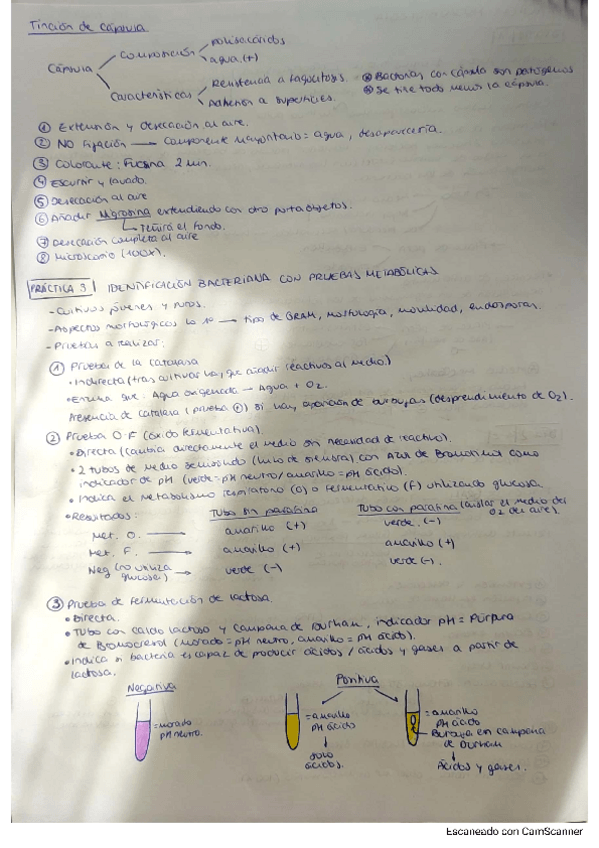 Tinción de cápsula
Cápsula
Composición
polisacáridos
agua (+)
Características
Resistencia a fagocitosis.
Adhesión a superficies.
⊛ Bacterias con cápsula son patógenas
⊛ Se tiñe todo menos la cápsula.
① Extensión y desecación al aire.
② NO fijación → componente mayoritario = agua, desaparecería.
③ Colorante: Fucsina 2 min.
④ Escurrir y lavado.
⑤ Desecación al aire
⑥ Añadir Nigrosina extendiendo con otro portaobjetos.
Teñirá el fondo.
⑦ Desecación completa al aire
⑧ Microscopio (100X).
PRÁCTICA 3 IDENTIFICACIÓN BACTERIANA CON PRUEBAS METABÓLICAS
- Cultivos jóvenes y puros.
- Aspectos morfológicos lo 1º → tipo de GRAM, morfología, movilidad, endosporas.
- Pruebas a realizar:
① Prueba de la catalasa
• Indirecta (tras cultivar hay que añadir reactivos al medio)
• Enzima que: Agua oxigenada → Agua + O2.
Presencia de catalasa (prueba ⊕) si hay aparición de burbujas (desprendimiento de O2).
② Prueba O-F (óxido fermentativa).
• Directa (cambia directamente el medio sin necesidad de reactivo).
• 2 tubos de medio semisólido con Azul de Bromotimol como
indicador de pH (verde = pH neutro / amarillo = pH ácido).
• Indica el metabolismo respiratorio (O) o fermentativo (F) utilizando glucosa.
• Resultados:
Tubo sin parafina
Tubo con parafina (aislar el medio del O2 del aire).
Met. O. → amarillo (+) verde (-)
Met. F. → amarillo (+) amarillo (+)
Neg (no utiliza glucosa) → verde (-) verde (-).
③ Prueba de fermentación de lactosa.
• Directa.
• Tubo con caldo lactosa y campana de Durham, indicador pH = Púrpura
de Bromocresol (morado = pH neutro, amarillo = pH ácido).
• Indica si bacteria es capaz de producir ácidos / ácidos y gases a partir de
lactosa.
Negativa
Positiva
= morado
pH neutro.
= amarillo
pH ácido
↓
solo
ácidos.
= amarillo
pH ácido
Burbuja en campana
de Durham
↓
Ácidos y gases.
Escaneado con CamScanner